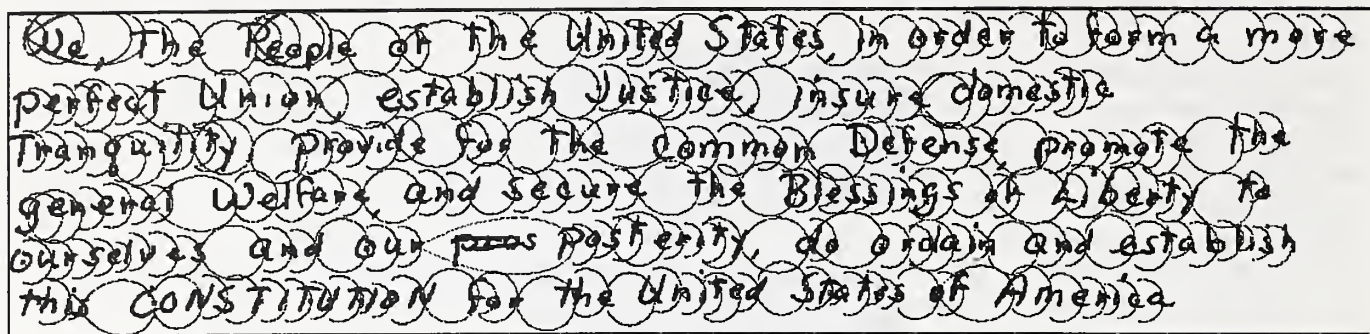 We, the People of the United States, in order to form a more
perfect Union, establish Justice, insure domestic
Tranquility, provide for the common Defense, promote the
general Welfare, and secure the Blessings of Liberty to
ourselves and our posterity, do ordain and establish
this CONSTITUTION for the United States of America